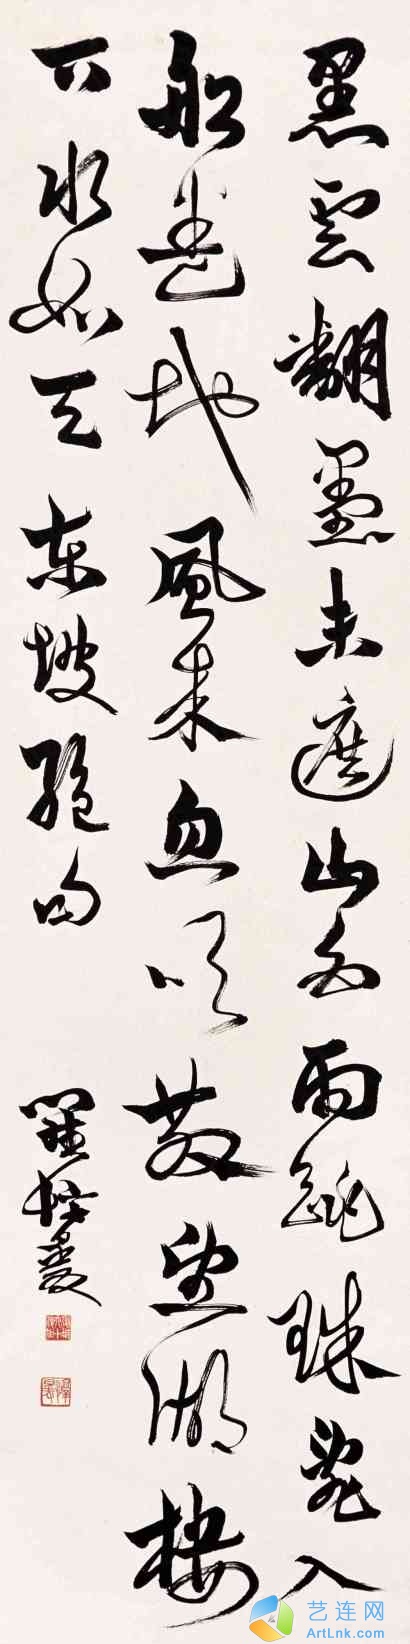 黑雲翻墨未遮山白雨跳珠亂入
船卷地風來忽吹散望湖樓
下水如天 東坡絕句
艺连网
ArtLnk.com